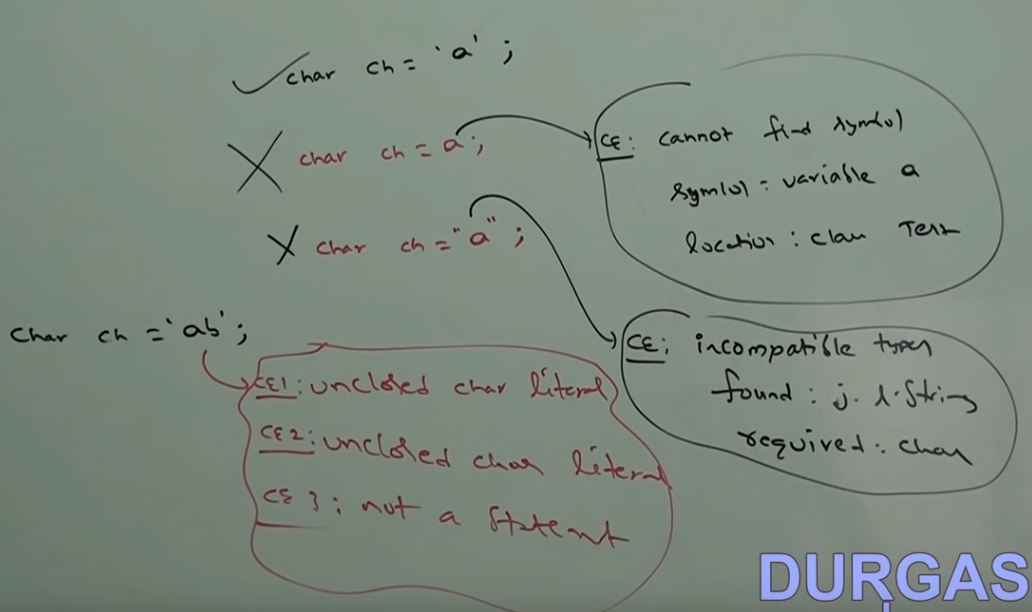 char ch = 'a' ;
char ch = a ;
CE : cannot find symbol
symbol : variable a
location : class Test
char ch = "a" ;
char ch = 'ab' ;
CE : incompatible types
found : j.l.String
required : char
CE1 : unclosed char literal
CE2 : unclosed char literal
CE3 : not a statemt
DURGAS